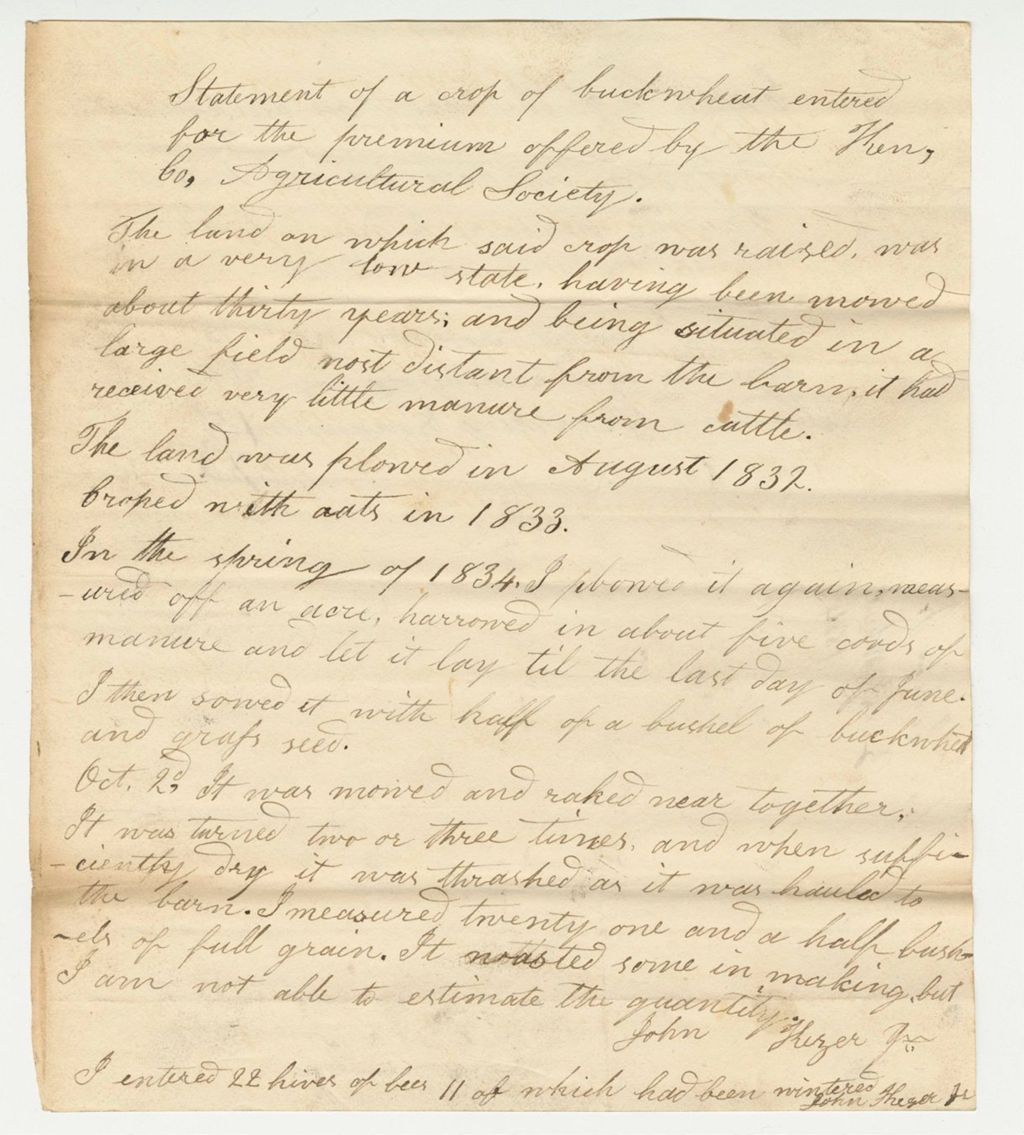 Statement of a crop of buckwheat entered
for the premium offered by the Ken,
Co, Agricultural Society.
The land on which said crop was raised, was
in a very low state, having been mowed
about thirty years; and being situated in a
large field most distant from the barn, it had
received very little manure from cattle.
The land was plowed in August 1832.
Croped with oats in 1833.
In the spring of 1834. I plowed it again, meas-
-ured off an acre, harrowed in about five cords of
manure and let it lay til the last day of June.
I then sowed it with half of a bushel of buckwheat
and grass seed.
Oct. 2d, It was mowed and raked near together,
It was turned two or three times, and when suffi-
-ciently dry it was thrashed as it was hauled to
the barn. I measured twenty one and a half bush-
-els of full grain. It wasted some in making, but
I am not able to estimate the quantity.
John Kezer Jr
I entered 22 hives of bees 11 of which had been wintered
John Kezer Jr